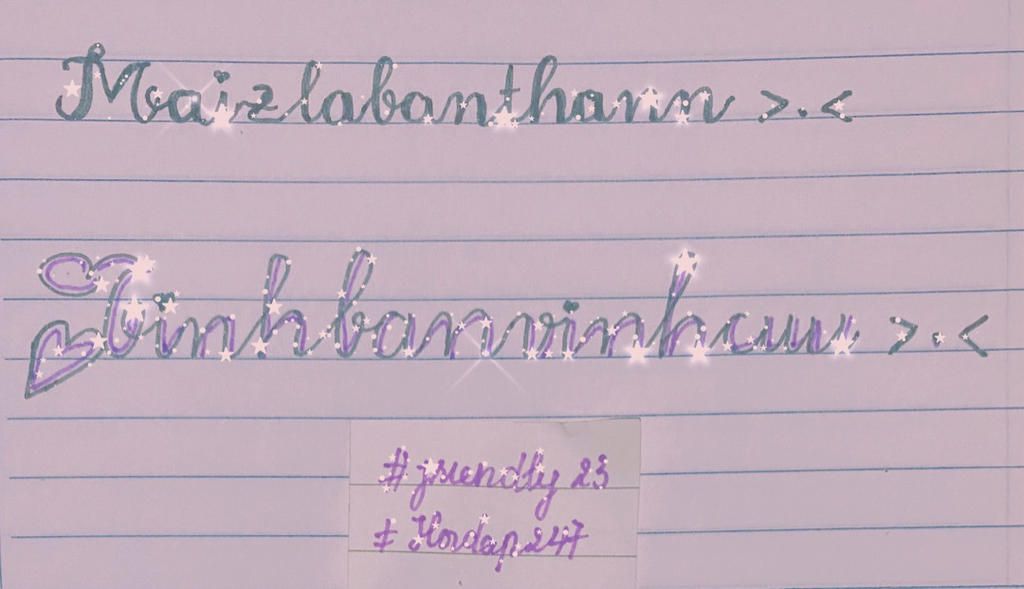 Maizlabanthann >.<
Tinhbanvinhcuu >.<
#jsiendly 23
# Hordap247